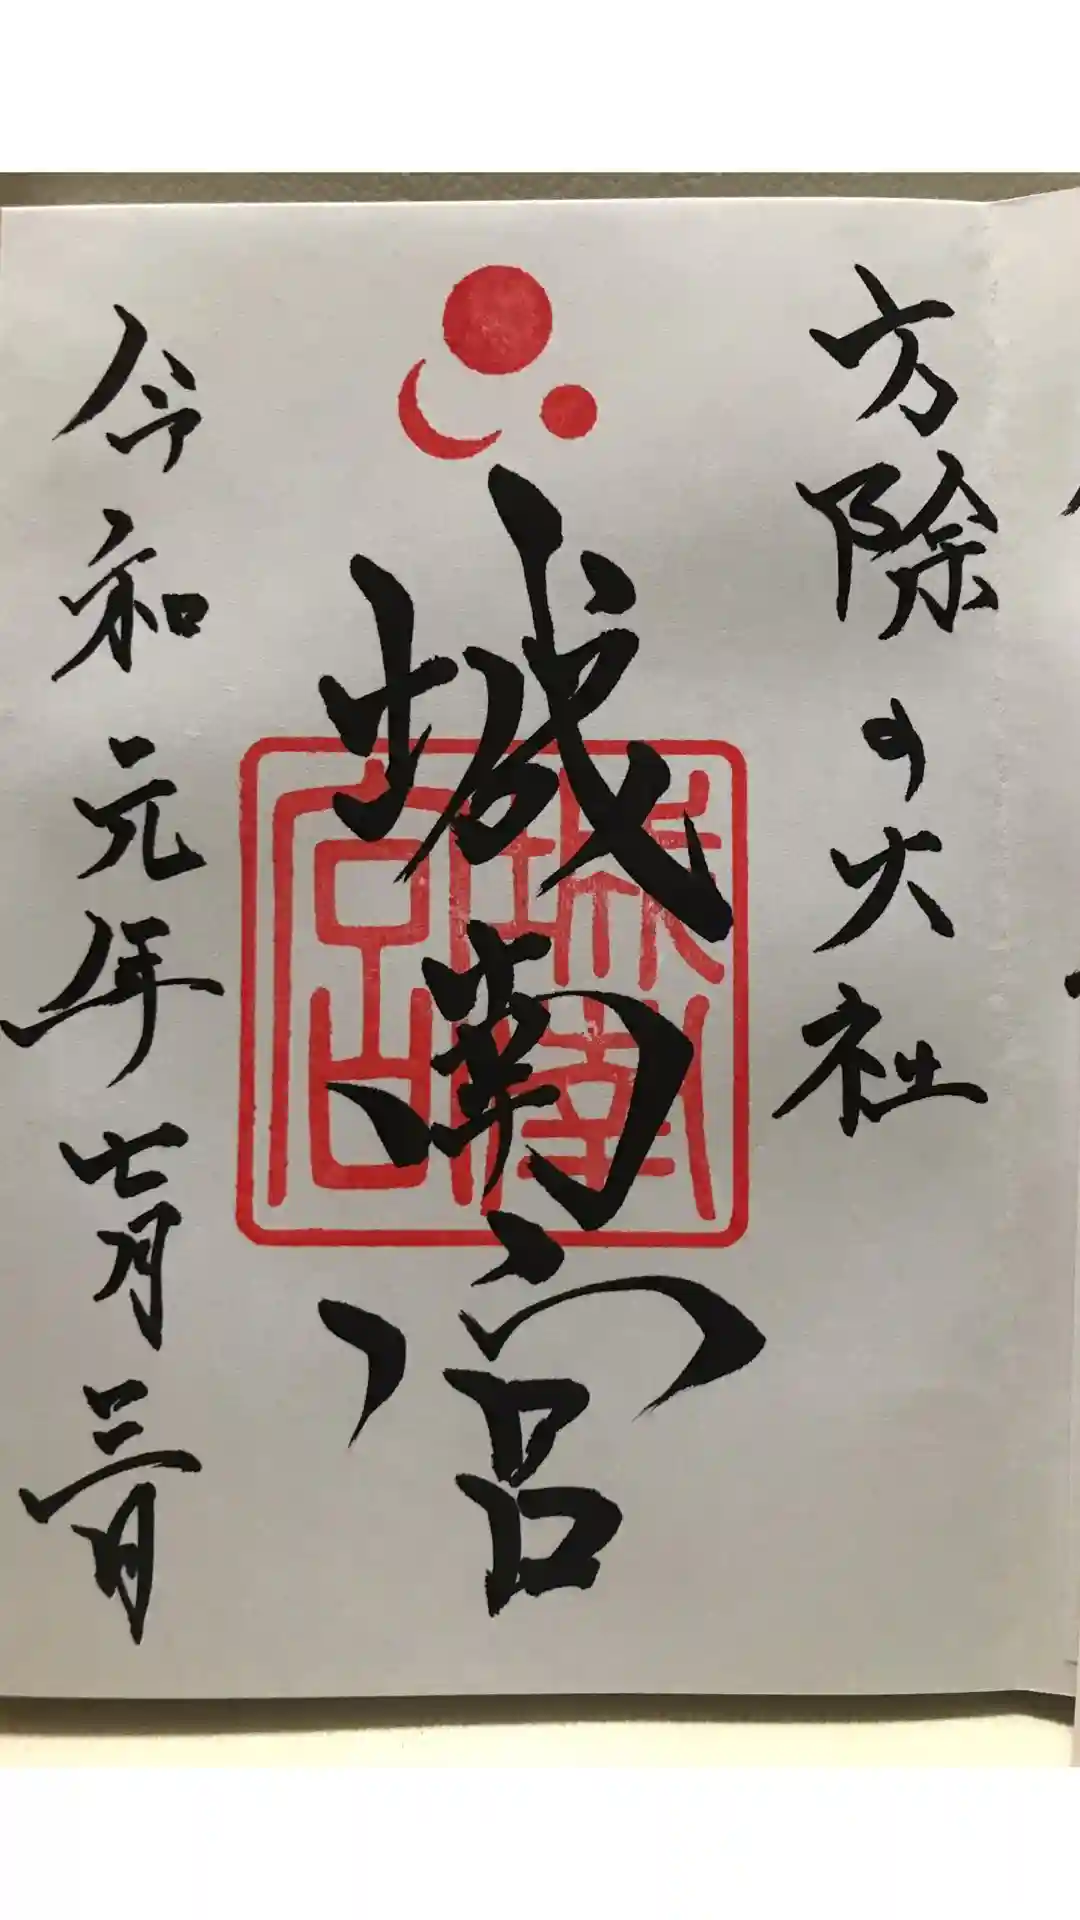 方除の大社
城南宮
城南宮
令和元年七月三日